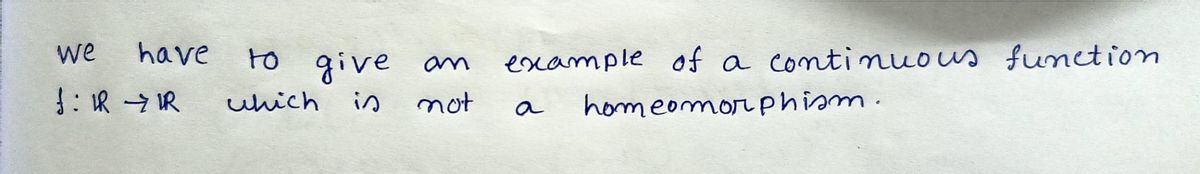 we have to give an example of a continuous function
f: ℝ → ℝ which is not a homeomorphism.